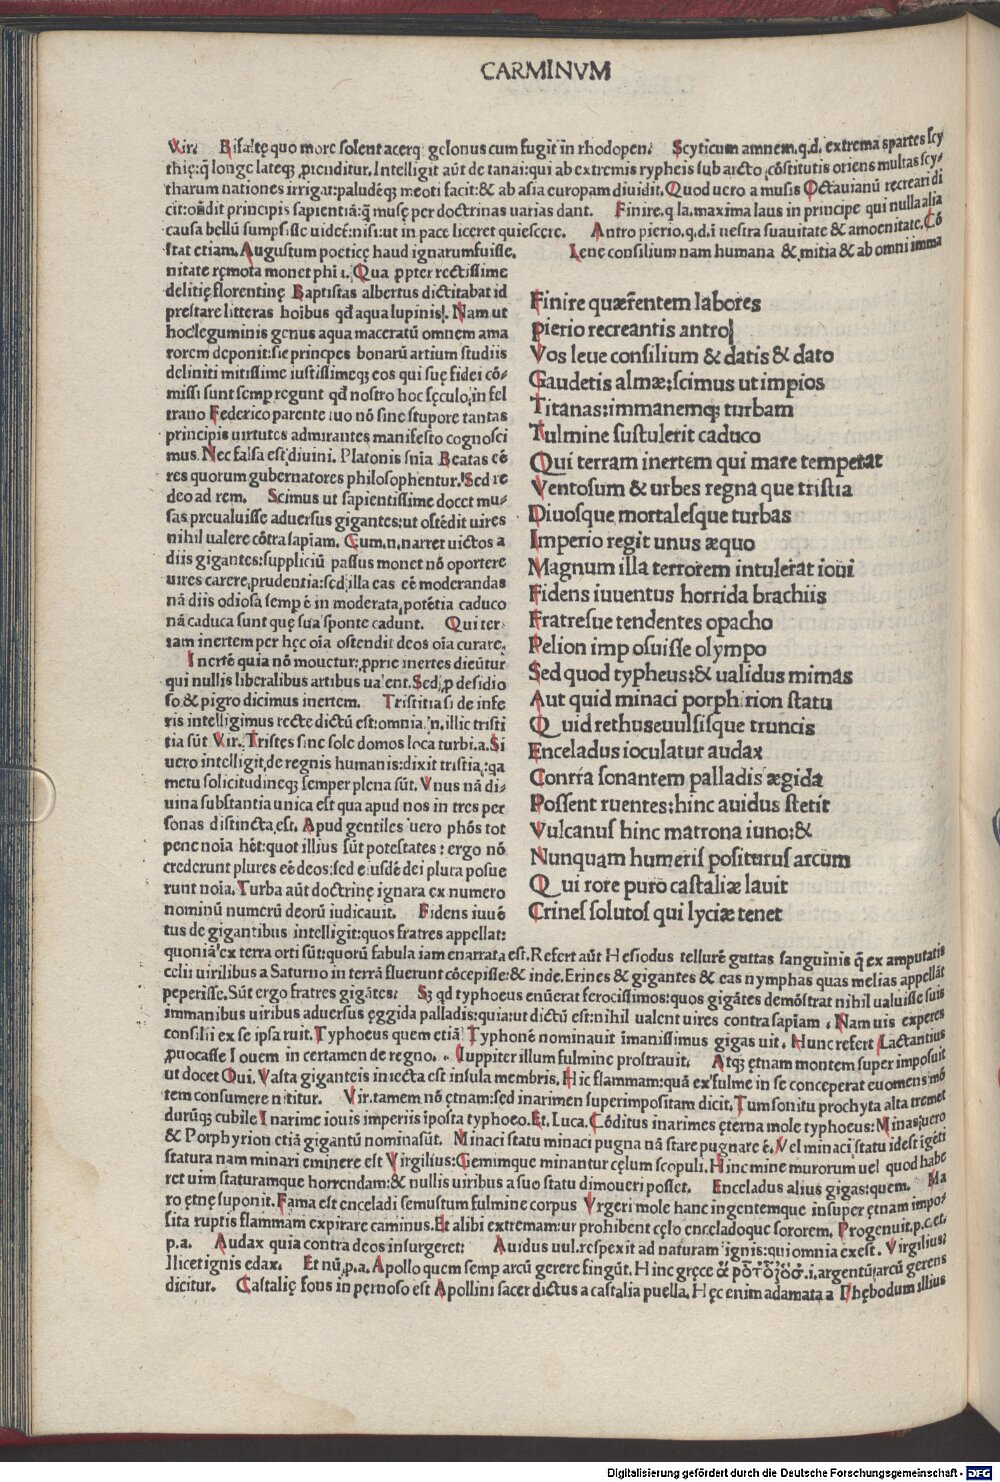 CARMINVM
Vir. Bisaltę quo more solent acerq; gelonus cum fugit in rhodopen. Scyticum amnem.q.d. extrema spartes scy
thię:q̄ longe lateq; ꝓtenditur. Intelligit aūt de tanai:qui ab extremis rypheis sub arcto cōstitutis oriens multas scy-
tharum nationes irrigat:paludēq; meoti facit:& ab asia europam diuidit. Quod uero a musis Octauianū recreari di
cit:oñdit principis sapientiā:q̄ musę per doctrinas uarias dant. Finire.q la.maxima laus in principe qui nulla alia
causa bellū sumpsisse uidet̄:nisi:ut in pace liceret quiescere. Antro pierio.q.d.i uestra suauitate & amoenitate. Cō
stat etiam. Augustum poeticę haud ignarum fuisse. Lene consilium nam humana & mitia & ab omni imma
nitate remota monet phi ı. Qua ꝓpter rectissime
delitię florentinę Baptistas albertus dictitabat id
prestare litteras hoībus qd̄ aqua lupinis. Nam ut
hoc leguminis genus aqua maceratū omnem ama
rorem deponit:sic principes bonarū artium studiis
deliniti mitissime iustissimeq; eos qui suę fidei cō-
missi sunt semp regunt qd̄ nostro hoc sęculo in fel
trano Federico parente tuo nō sine stupore tantas
principis uirtutes admirantes manifesto cognosci
mus. Nec falsa est diuini. Platonis snīa Beatas cē
res quorum gubernatores philosophentur. Sed re
deo ad rem. Scimus ut sapientissime docet mu-
sas preualuisse aduersus gigantes:ut ostēdit uires
nihil ualere cōtra sapīam. Cum.n.narret uictos a
diis gigantes:suppliciū passus monet nō oportere
uires carere prudentia:sed illa eas eē moderandas
nā diis odiosa semp ē in moderata potētia caduco
nā caduca sunt quę sua sponte cadunt. Qui ter-
ram inertem per hęc oīa ostendit deos oīa curare.
Inertē quia nō mouetur:ꝓprie inertes dicūtur
qui nullis liberalibus artibus ualent. Sed ꝓ desidio
so & pigro dicimus inertem. Tristitia si de infe
ris intelligimus recte dictū est:omnia.n.illic tristi
tia sūt Vir. Tristes sine sole domos loca turbi.a. Si
uero intelligit de regnis humanis:dixit tristia:qa
metu solicitudineq; semper plena sūt. Vnus nā di-
uina substantia unica est qua apud nos in tres per
sonas distincta est. Apud gentiles uero phōs tot
pene noīa hēt:quot illius sūt potestates: ergo nō
crederunt plures eē deos:sed eiusdē dei plura posue
runt noīa. Turba aūt doctrinę ignara ex numero
nominū numerū deorū iudicauit. Fidens iuuē
tus de gigantibus intelligit:quos fratres appellat:
Finire quærentem labores
Pierio recreantis antro
Vos leue consilium & datis & dato
Gaudetis almæ:scimus ut impios
Titanas:immanemq; turbam
Tulmine sustulerit caduco
Qui terram inertem qui mare temperat
Ventosum & urbes regna que tristia
Diuosque mortalesque turbas
Imperio regit unus æquo
Magnum illa terrorem intulerat ioui
Fidens iuuentus horrida brachiis
Fratresue tendentes opacho
Pelion imposuisse olympo
Sed quod typheus:& ualidus mimas
Aut quid minaci porphirion statu
Quid rethuseuulsisque truncis
Enceladus ioculatur audax
Contra sonantem palladis ægida
Possent ruentes:hinc auidus stetit
Vulcanus hinc matrona iuno:&
Nunquam humeris positurus arcum
Qui rore puro castaliæ lauit
Crines solutos qui lyciæ tenet
quoniā ex terra orti sūt:quotū fabula iam enarrata est. Refert aūt Hesiodus tellurē guttas sanguinis q̄ ex amputatis
celii uirilibus a Saturno in terrā fluerunt cōcepisse:& inde. Erines & gigantes & eas nymphas quas melias appellāt
peperisse. Sūt ergo fratres gigātes: Sȝ qd typhoeus enūerat ferocissimos:quos gigātes demōstrat nihil ualuisse suis
immanibus uiribus aduersus ęggida palladis:quia:ut dictū est:nihil ualent uires contra sapīam. Nam uis experes
consilii ex se ipsa ruit. Typhoeus quem etiā Typhonē nominauit īmanissimus gigas uit. Hunc refert Lactantius
ꝓuocasse Iouem in certamen de regno. Iuppiter illum fulmine prostrauit. Atq; ętnam montem super imposuit
ut docet Oui. Vasta giganteis iniecta est insula membris. Hic flammam:quā ex fulme in se conceperat euomens mō
tem consumere nititur. Vir.tamem nō ętnam:sed inarimen superimpositam dicit. Tum sonitu prochyta alta tremet
durūq; cubile Inarime iouis imperiis īposta typhoeo. Et. Luca. Cōditus inarimes ęterna mole typhoeus: Minas:uero
& Porphyrion etiā gigantū nominasūt. Minaci statu minaci pugna nā stare pugnare ē. Vel minaci statu idest igēti
statura nam minari eminere est Virgilius: Gemimque minantur cęlum scopuli. Hinc mine murorum uel quod habe
ret uim staturamque horrendam:& nullis uiribus a suo statu dimoueri posset. Enceladus alius gigas:quem. Ma
ro ętnę suponit. Fama est enceladi semustum fulmine corpus Vrgeri mole hanc ingentemque insuper ętnam impo-
sita ruptis flammam expirare caminus. Et alibi extremam:ur prohibent cęlo enceladoque sororem. Progenuit.p.c.et.
p.a. Audax quia contra deos insurgeret: Auidus uul.respexit ad naturam ignis:qui omnia exest. Virgilius:
Ilicet ignis edax. Et nū.p.a. Apollo quem semp arcū gerere fingūt. Hinc gręce .i.argentū arcū gerens
dicitur. Castalię fons in pernoso est Apollini sacer dictus a castalia puella. Hęc enim adamata a Phębo dum illius
Digitalisierung gefördert durch die Deutsche Forschungsgemeinschaft - DFG